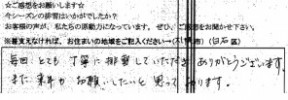 ☆ご感想をお願いします☆
今シーズンの排雪はいかがでしたか?
お客様の声が、私たちの原動力になっています。ぜひ、ご感想をお聞かせ下さい。
※差支えなければ、お住まいの地域をご記入ください→(札幌市)(白石区)
毎回 とても 丁寧に 排雪して いただき ありがとうございます。
また 来年も お願いしたいと 思って おります。